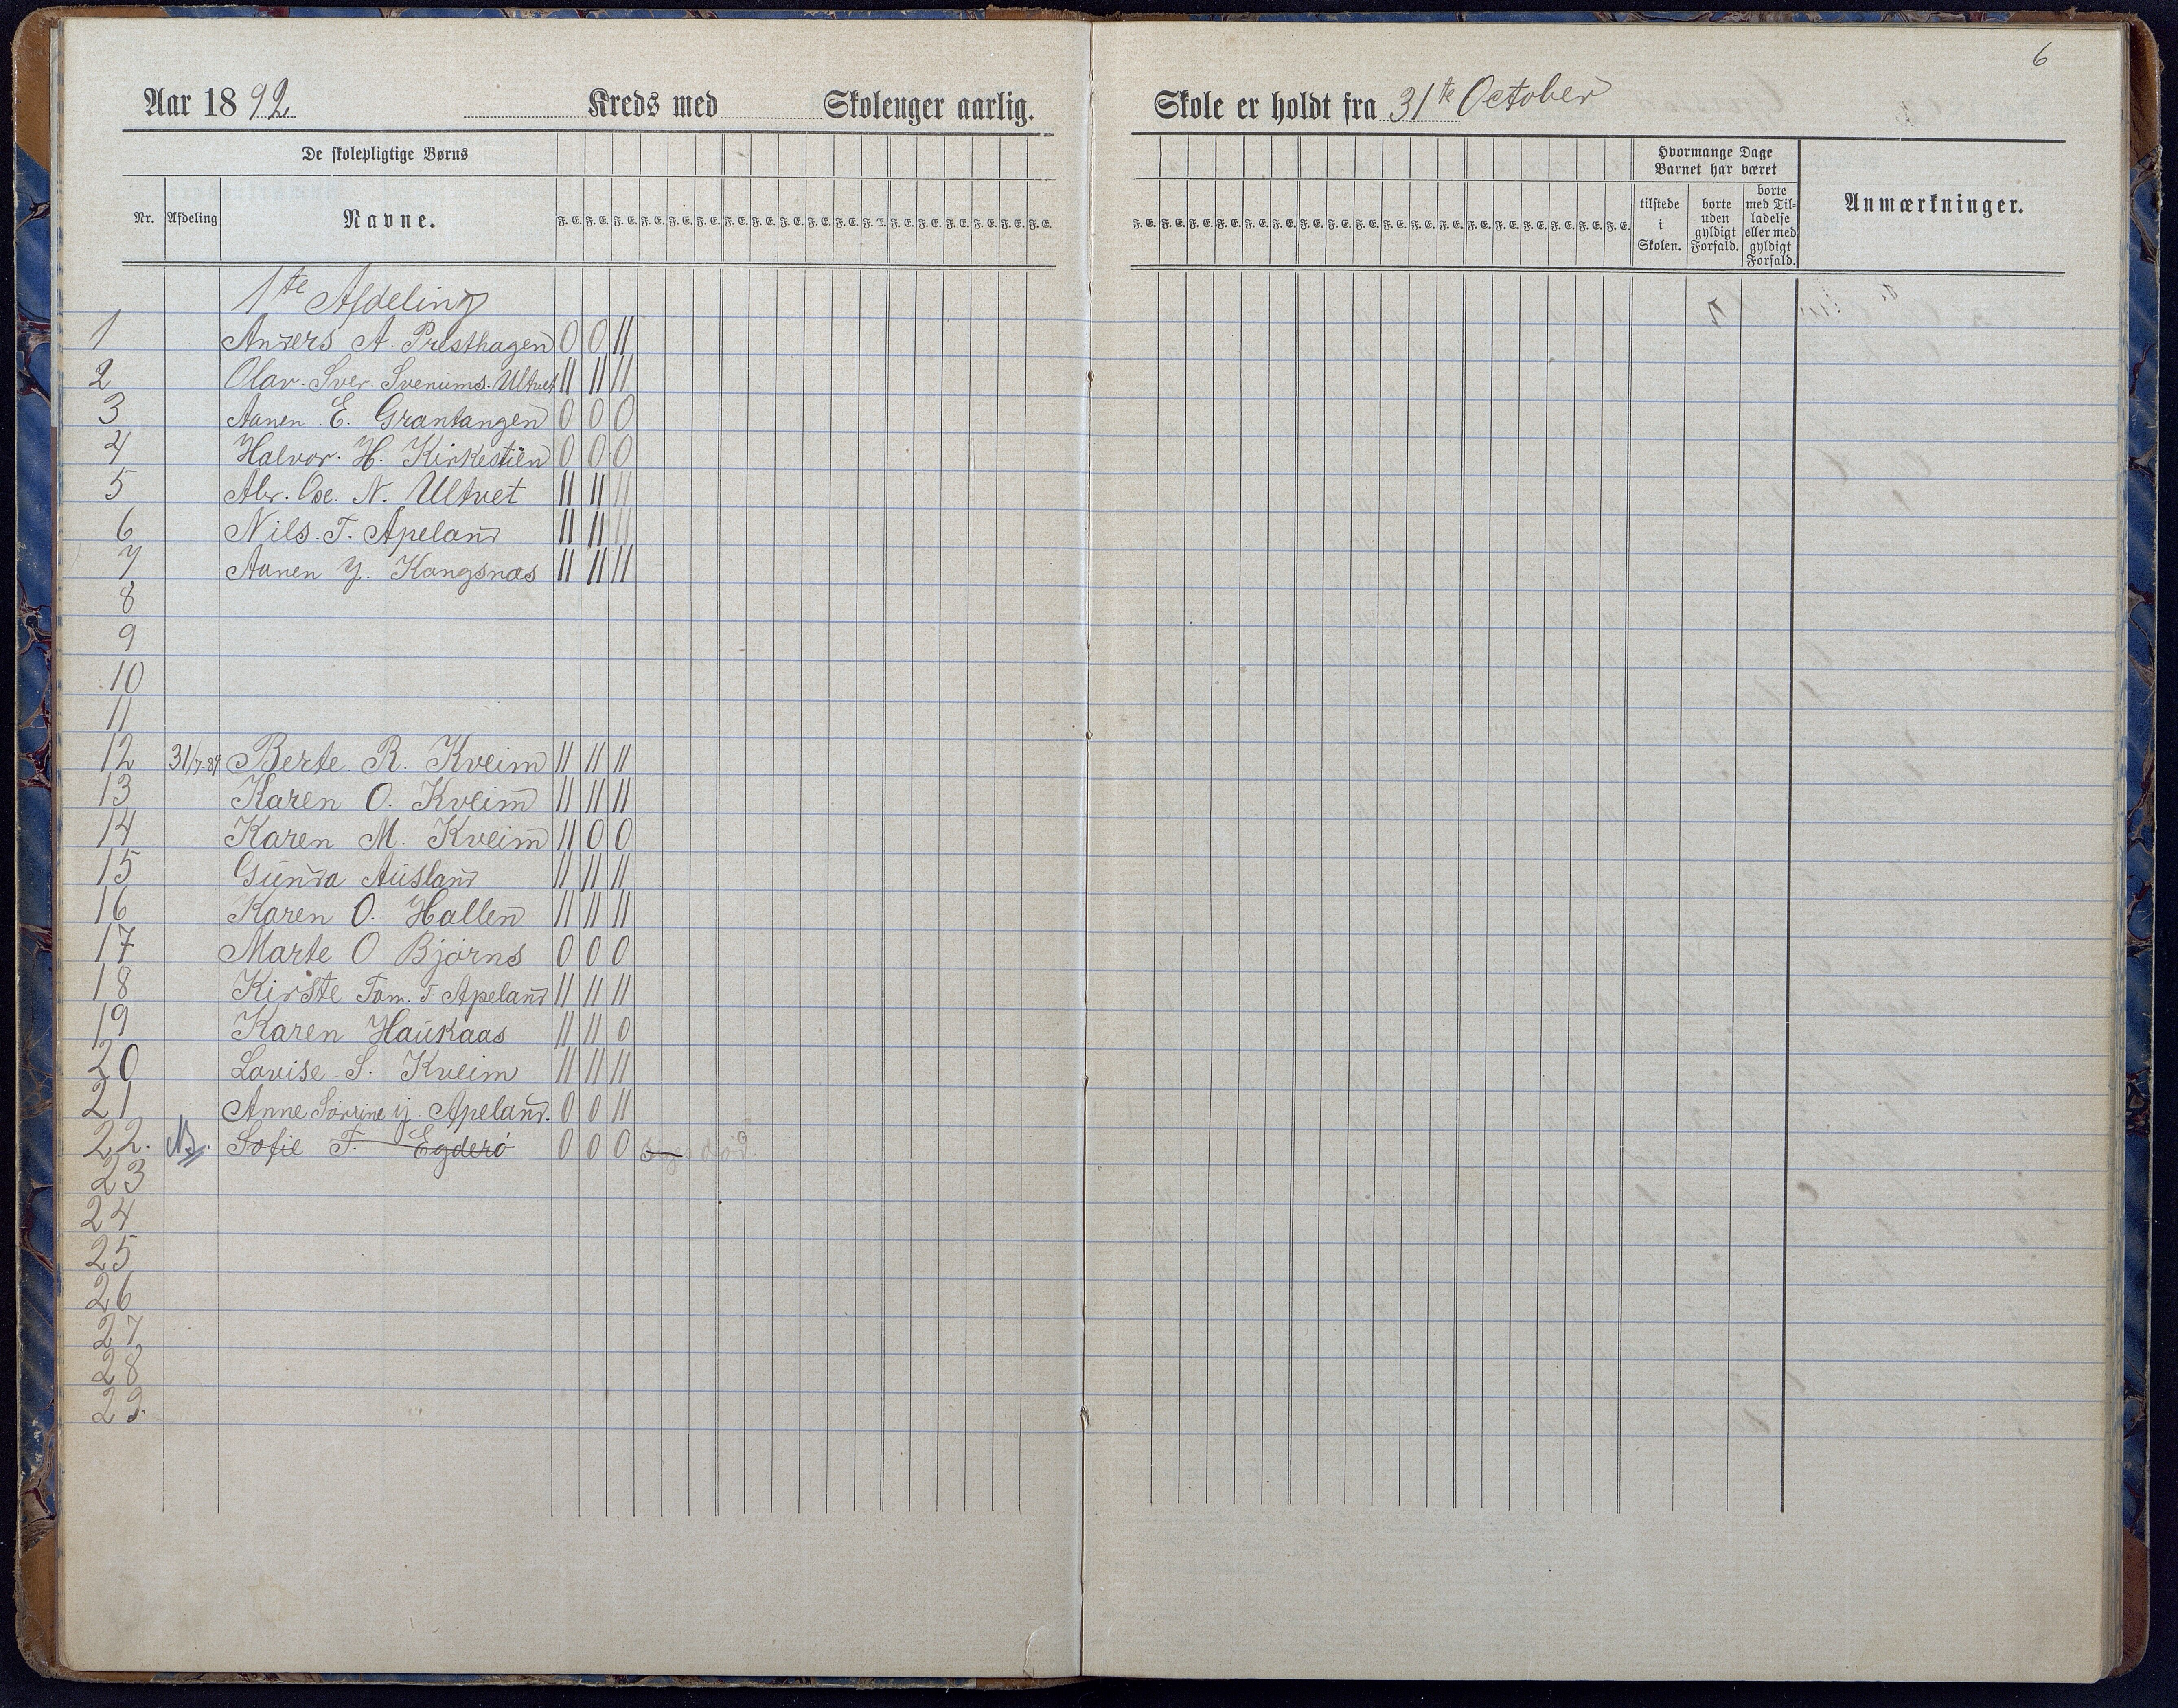 6
Aar 1892 Kreds med Skolenger aarlig. Skole er holdt fra 31te October
De skolepligtige Børns
Hvormange Dage Barnet har været
Nr. Afdeling Navne. F. E. F. E. F. E. F. E. F. E. F. E. F. E. F. E. F. E. F. E. F. E. F. E. F. E. F. E. F. E. F. E. F. E. F. E.
F. E. F. E. F. E. F. E. F. E. F. E. F. E. F. E. F. E. F. E. F. E. F. E. F. E. F. E. F. E. F. E. F. E. F. E.
tilstede i Skolen. borte uden gyldigt Forfald. borte med Tilladelse eller med gyldigt Forfald. Anmærkninger.
1te Afdeling
1 Anders A. Presthagen 0 0 ||
2 Olav. Sver. Ultvet || || ||
3 Aanen E. Grantangen 0 0 0
4 Halvor. H. Kirkestien 0 0 0
5 Abr. Ose. N. Ultvet || || ||
6 Nils. T. Apeland || || ||
7 Aanen Y. Kangsnæs || || ||
8
9
10
11
12 31/7 84 Berte R. Kveim || || ||
13 Karen O. Kveim || || ||
14 Karen M. Kveim || 0 0
15 Gunda Ausland || || ||
16 Karen O. Hallen || || ||
17 Marte O Bjørns 0 0 0
18 Kirste Tom. T. Apeland || || ||
19 Karen Haukaas || || 0
20 Lovise S. Kveim || || ||
21 Anne Y. Apeland. 0 0 ||
22. Sofie T. Egderø 0 0 0 død.
23
24
25
26
27
28
29.